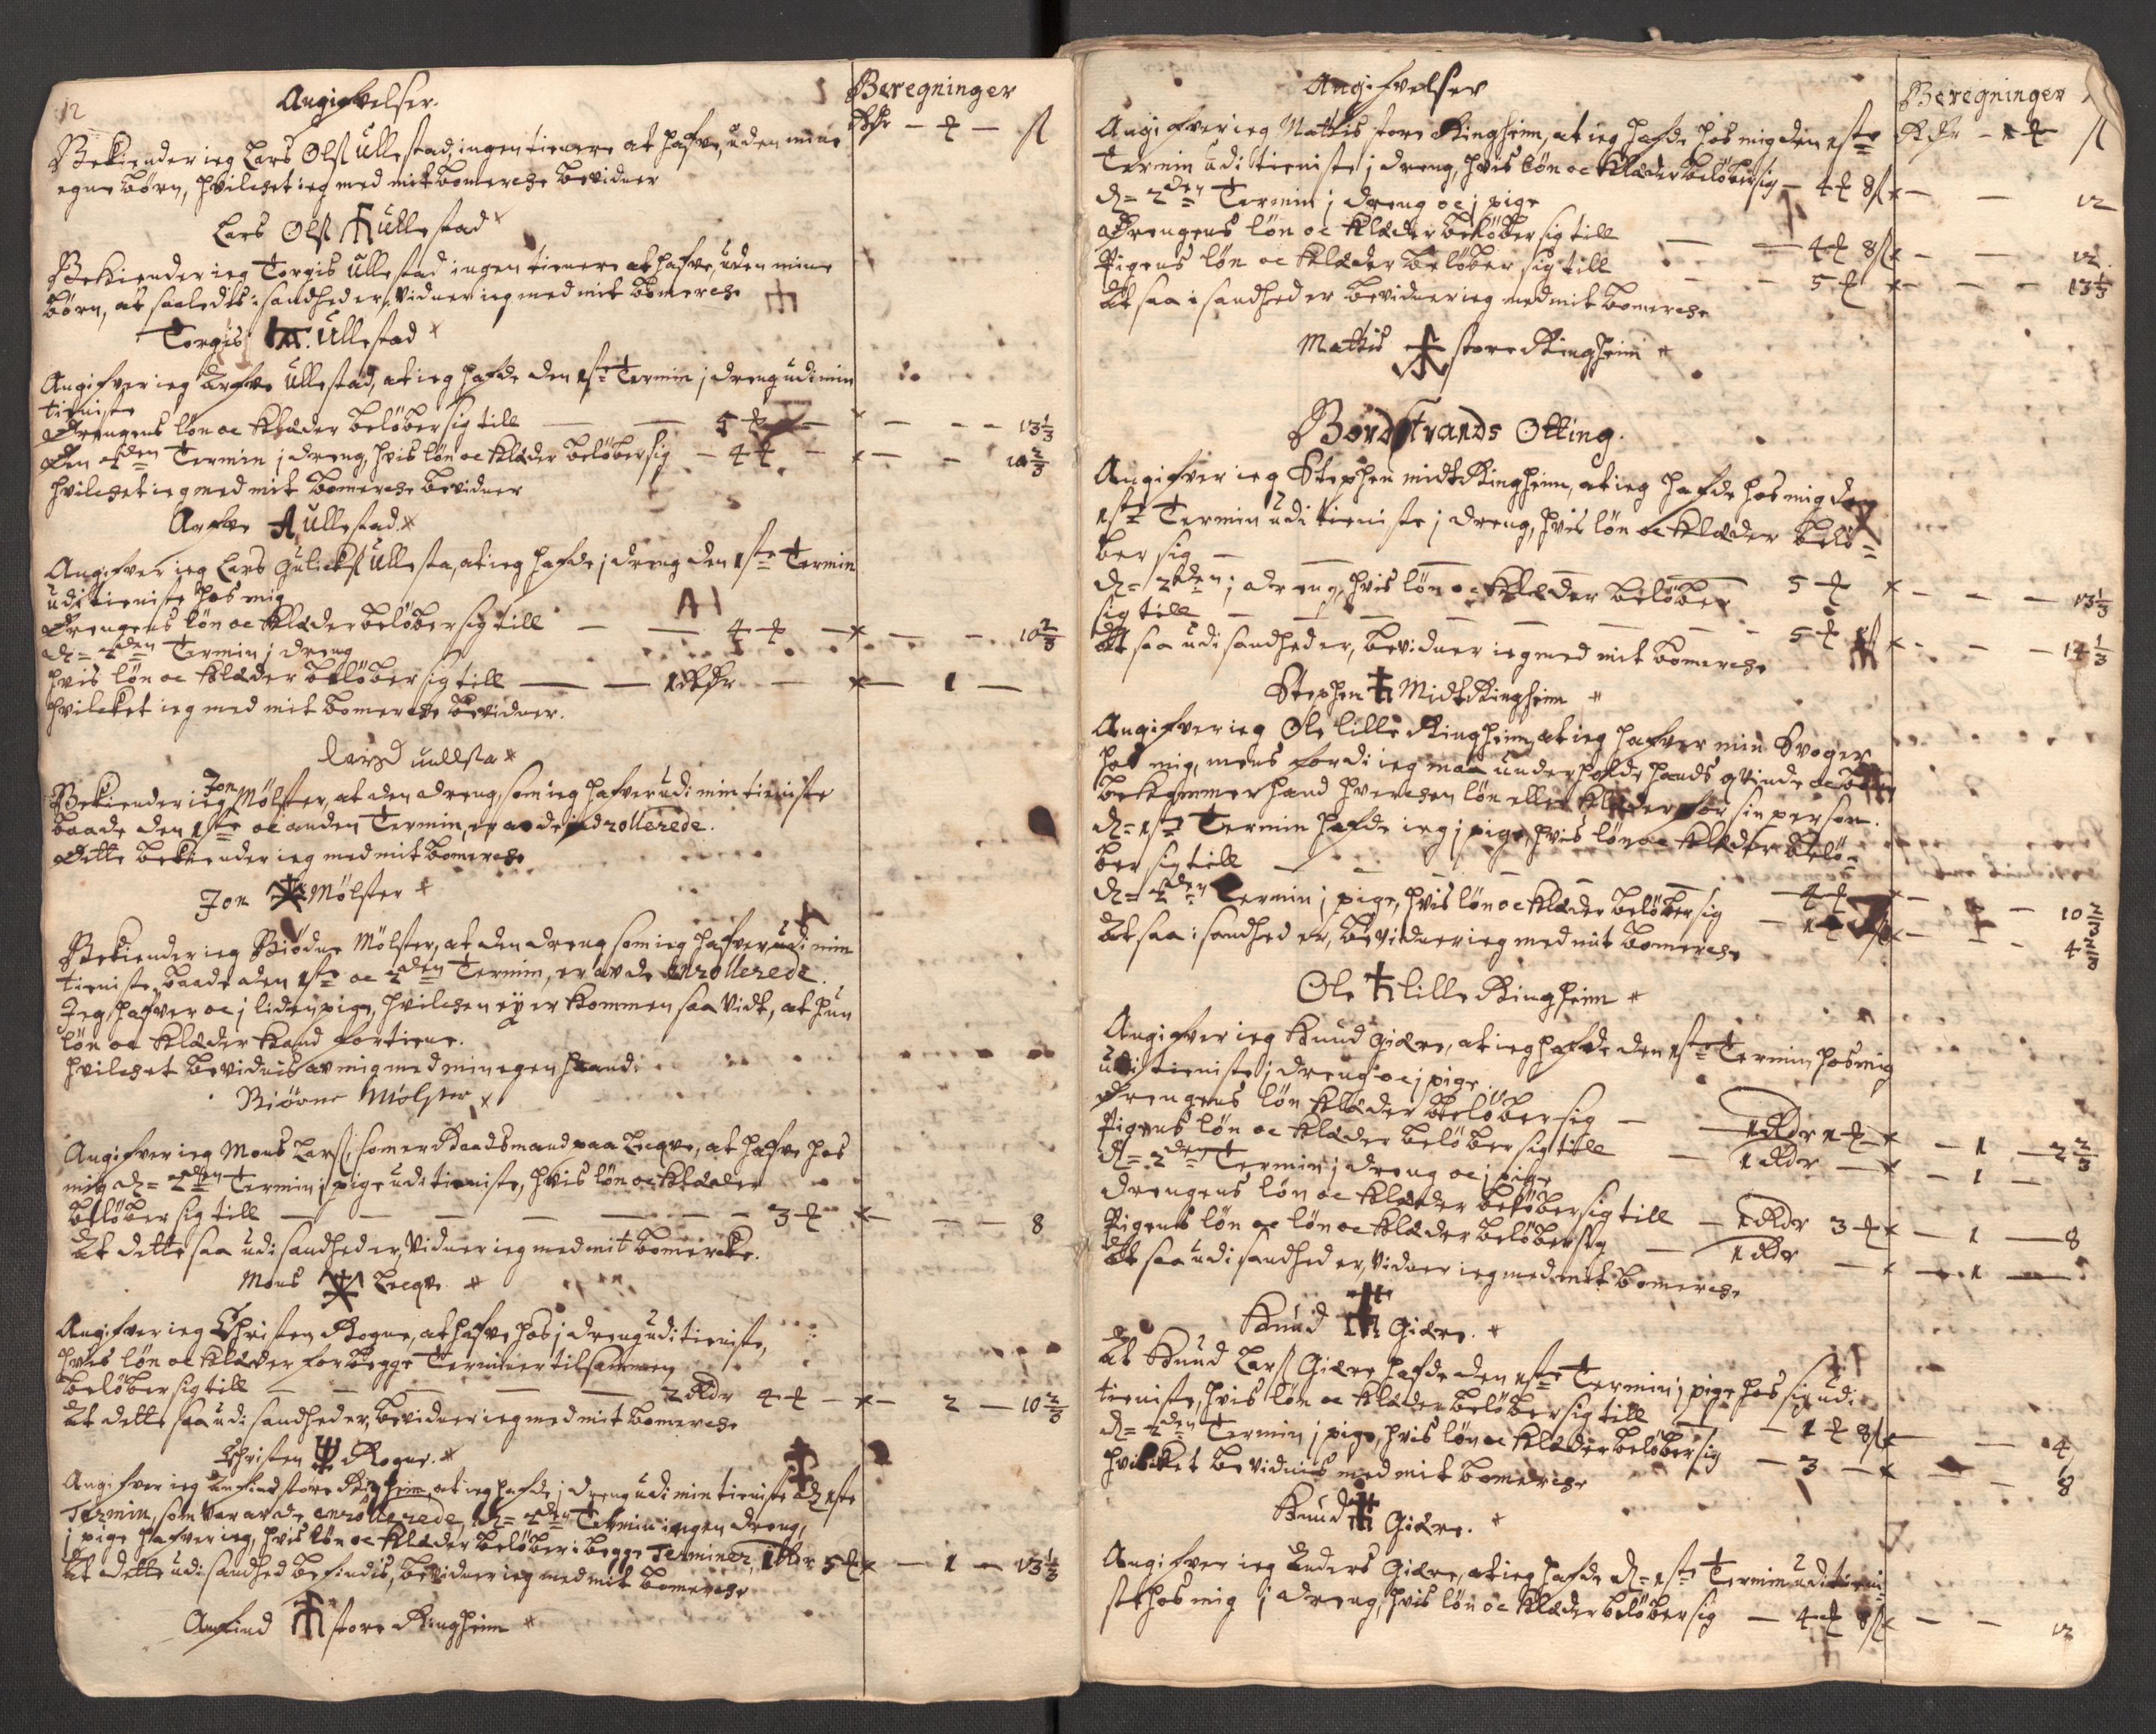 12
Angifvelser.
Beregninger
Rdr — ₰ — ß
Bekiender ieg Lars Olß Ullestad, ingen tienere at hafve, uden mine
egne börn, hvilchet ieg med mit bomerche bevidner
Lars Olß Ullestad
Bekiender ieg Torgis Ullestad ingen tienere at hafve, uden mine
börn, at saaledis i sandhed er, vidner ieg med mit bomerche
Torgis Ullestad
Angifver ieg Arfve Ullestad, at ieg hafde den 1ste Termin j dreng udi min
tieniste
Drengens lön oc Klæder belöber sig till — 5 ₰ — 13 1/3
Den 2den Termin j dreng, hvis lön oc Klæder belöber sig — 4 ₰ — 10 2/3
hvilchet ieg med mit bomerche bevidner
Arfve A Ullestad
Angifver ieg Lars Gulichß Ullesta, at ieg hafde j dreng den 1ste Termin
udi tieniste hos mig
Drengens lön oc Klæder belöber sig till — 4 ₰ — 10 2/3
d= 2den Termin j dreng
hvis lön oc Klæder belöber sig till — 1 Rdr — 1 —
hvilcket ieg med mit bomerche bevidner.
Larsd uullsta
Bekiender ieg Jon Mölster, at den dreng, som ieg hafver udi min tieniste
baade den 1ste oc anden Termin, er av de indrollerede.
Dette bekiender ieg med mit bomerche
Jon Mölster
Bekiender ieg Biödne Mölster, at den dreng som ieg hafver udi min
tieniste baade den 1ste oc 2den Termin, er av de enrollerede.
Jeg hafver oc j liden pige, hvilchen ey er kommen saa vidt, at hun
lön oc Klæder kand fortiene.
hvilchet bevidnis av mig med min egen haand.
Biörne Mölster
Angifver ieg Mons Larß, som er Raadsmand paa Lecqve, at hafve hos
mig d= 2den Termin j pige udi tieniste, hvis lön oc Klæder
belöber sig till — 3 ₰ — 8
At dette saa udi sandhed er, vidner ieg med mit bomercke.
Mons Lecqve
Angifver ieg Christen Rogne, at hafve hos j dreng udi tieniste,
hvis lön oc Klæder for begge Terminer tilsammen
belöber sig till — 2 Rdr 4 ₰ — 2 — 10 2/3
At dette saa udi sandhed er, bevidner ieg med mit bomerche
Christen Rogne.
Angifver ieg Anfind store Ringheim, at ieg hafde j dreng udi min tieniste d= 1ste
Termin, som var av de enrollerede, d= 2den Termin ingen dreng,
j pige hafver ieg, hvis lön oc Klæder belöber i begge Terminer, 1 Rdr 5 ₰ — 1 — 13 1/3
At dette udi sandhed befindis, bevidner ieg med mit bomerche
Anfind store Ringheim
Angifvelser
Beregninger
Rdr — ₰ ß
Angifver ieg Mattis store Ringheim, at ieg hafde hos mig den 1ste
Termin udi tieniste j dreng, hvis lön oc Klæder belöber sig — 4 ₰ 8 ß — 12
d= 2den Termin j dreng oc j pige
Drengens lön oc Klæder belöber sig till — 4 ₰ 8 ß — 12
Pigens lön oc Klæder belöber sig till — 5 ₰ — 13 1/3
At saa i sandhed er bevidner ieg med mit bomerche
Mattis store Ringheim
Bordstrands Otting.
Angifver ieg Stephen midt Ringheim, at ieg hafde hos mig den
1ste Termin udi tieniste j dreng, hvis lön oc Klæder belö=
ber sig — 5 ₰ — 13 1/3
d= 2den j dreng, hvis lön oc Klæder belöber
sig till — 5 ₰ — 14 1/3
At saa udi sandhed er, bevidner ieg med mit bomerche
Stephen Midt Ringheim
Angifver ieg Ole lille Ringheim, at ieg hafver min Svoger
hos mig, mens fordi ieg maa underholde hands qvinde oc börn
bekommer hand hverchen lön eller Klæder for sin person.
d= 1ste Termin hafde ieg j pige, hvis lön oc Klæder belö=
ber sig till — 4 ₰ — 10 2/3
d= 2den Termin j pige, hvis lön oc Klæder belöber sig — 4 2/3
At saa i sandhed er, bevidner ieg med mit bomerche
Ole lille Ringheim
Angifver ieg Knud Giære, at ieg hafde den 1ste Termin hos mig
udi tieniste j dreng oc j pige
Drengens lön Klæder belöber sig — 1 Rdr 1 ₰ — 1 — 2 2/3
Pigens lön oc Klæder belöber sig till — 1 Rdr — 1 —
d= 2den Termin j dreng oc j pige
Drengens lön oc Klæder belöber sig till — 1 Rdr 3 ₰ — 1 — 8
Pigens lön oc lön oc Klæder belöber sig — 1 Rdr — 1 —
At saa udi sandhed er, vidner ieg med mit bomerche
Knud Giære.
At Knud Larß Giære hafde den 1ste Termin j pige hos sig udi
tieniste, hvis lön oc Klæder belöber sig till — 1 ₰ 8 ß — 4
d= 2den Termin j pige, hvis lön oc Klæder belöber sig — 3 — 8
hvilcket bevidnis med mit bomerche
Knud Giære.
Angifver ieg Anders Giære, at ieg hafde d= 1ste Termin udi tieni=
ste hos mig j dreng, hvis lön oc Klæder belöber sig — 4 ₰ 8 ß — 12